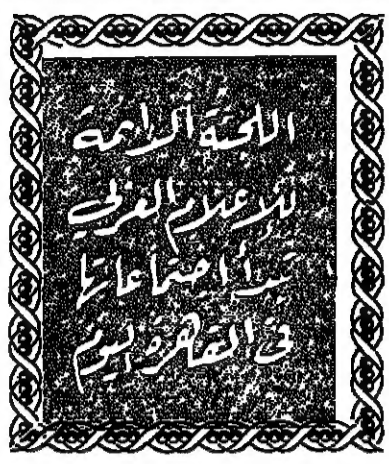 اللجنة الدائمة
للإعلام العربي
تبدأ اجتماعاتها
في القاهرة اليوم